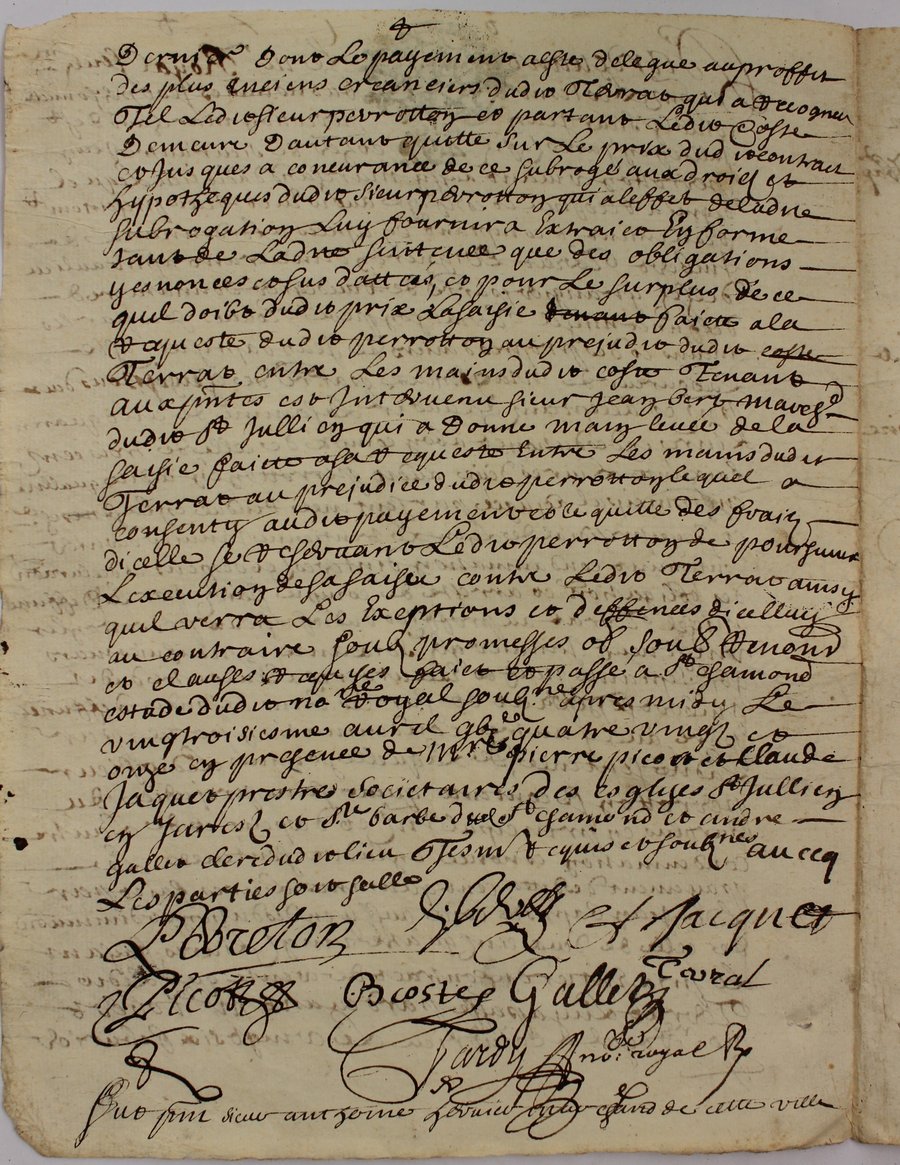 Dernier dont Le payement a este delegue au proffit
des plus enciens creanciers dudit Terrat qui a recognu
Tel Ledit sieur perrotton et partant Ledit Coste
Demeure Dautant quitte sur Le prix dudit contract
et Jusques a concurance de ce subrogé aux droicts et
hypotheques dudit sieur perrotton qui a leffet de ladite
subrogation Luy fournira Extraict En forme
tant de Ladte sentence que des obligations
y enoncées et sus dattées, et pour Le surplus de ce
quil doibt dudit prix La saisie faicte a la
requeste dudit perrotton au prejudit dudit
Terrat entre Les mains dudit coste Tenant
aux pntes est Intervenu sieur Jean bert march
dudit St Jullien qui a donne main levée de la
saisie faicte a sa requeste Entre Les mains dudit
Terrat au prejudice dudit perrotton lequel a
consenty audit payement et le quitte des fraicts
dicelle se reservant Ledit perrotton de poursuivre
Lexecution de sa saisie contre Ledit Terrat ainsy
quil verra Les Exeptions et deffences dicelluy
au contraire soub promesses ob soub renon
et clauses requises faict et passé a St chamond
estude dudit no re Royal soub ne apres midy Le
vingtroisiesme avril gbic quatre vingts et
onze en presence de mres pierre picot et Claude
Jaquet prestres societaires des esglizes St Jullien
en Jarest et Ste barbe dud St chamond et andre
gallet clerc dudit lieu Tesm requis et soub nes avecq
Les parties soit salle
Perreton Jacquet
Picot B coste Gallet Terrat
Tardy no re royal
sieur anthoine de cette ville